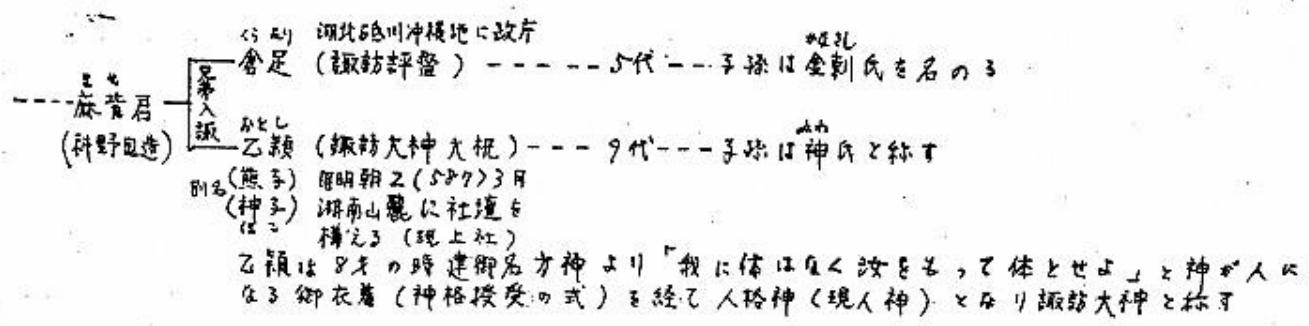 くらたり 湖北砥川沖積地に政庁
倉足 (諏訪評督) ------5代---子孫は金刺氏を名のる
かなさし
麻背君
(科野国造)
兄弟入諏
おとし
乙頴 (諏訪大神大祝)---9代---子孫は神氏と称す
みわ
別名(熊子) 用明朝2(587)3月
(神子) 湖南山麓に社壇を
構える (現上社)
乙頴は8才の時建御名方神より「我に体はなく汝をもって体とせよ」と神が人に
なる御衣着(神格授受の式)を経て人格神(現人神)となり諏訪大神と称す